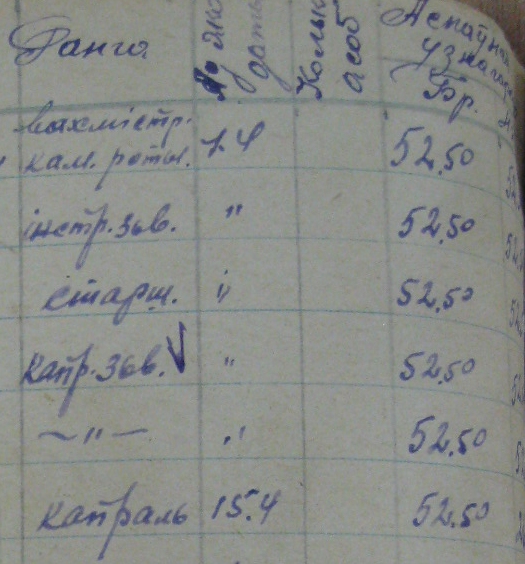 Ранга
Ад яко
даты
Кольк
асоб
Аснаўная
узнагар
Бр.
вахмістр.
кам. роты. 1.4 52.50
інстр. зьв. " 52.50
старш. " 52.50
капр. зьв. " 52.50
—"— " 52.50
капраль 15.4 52.50